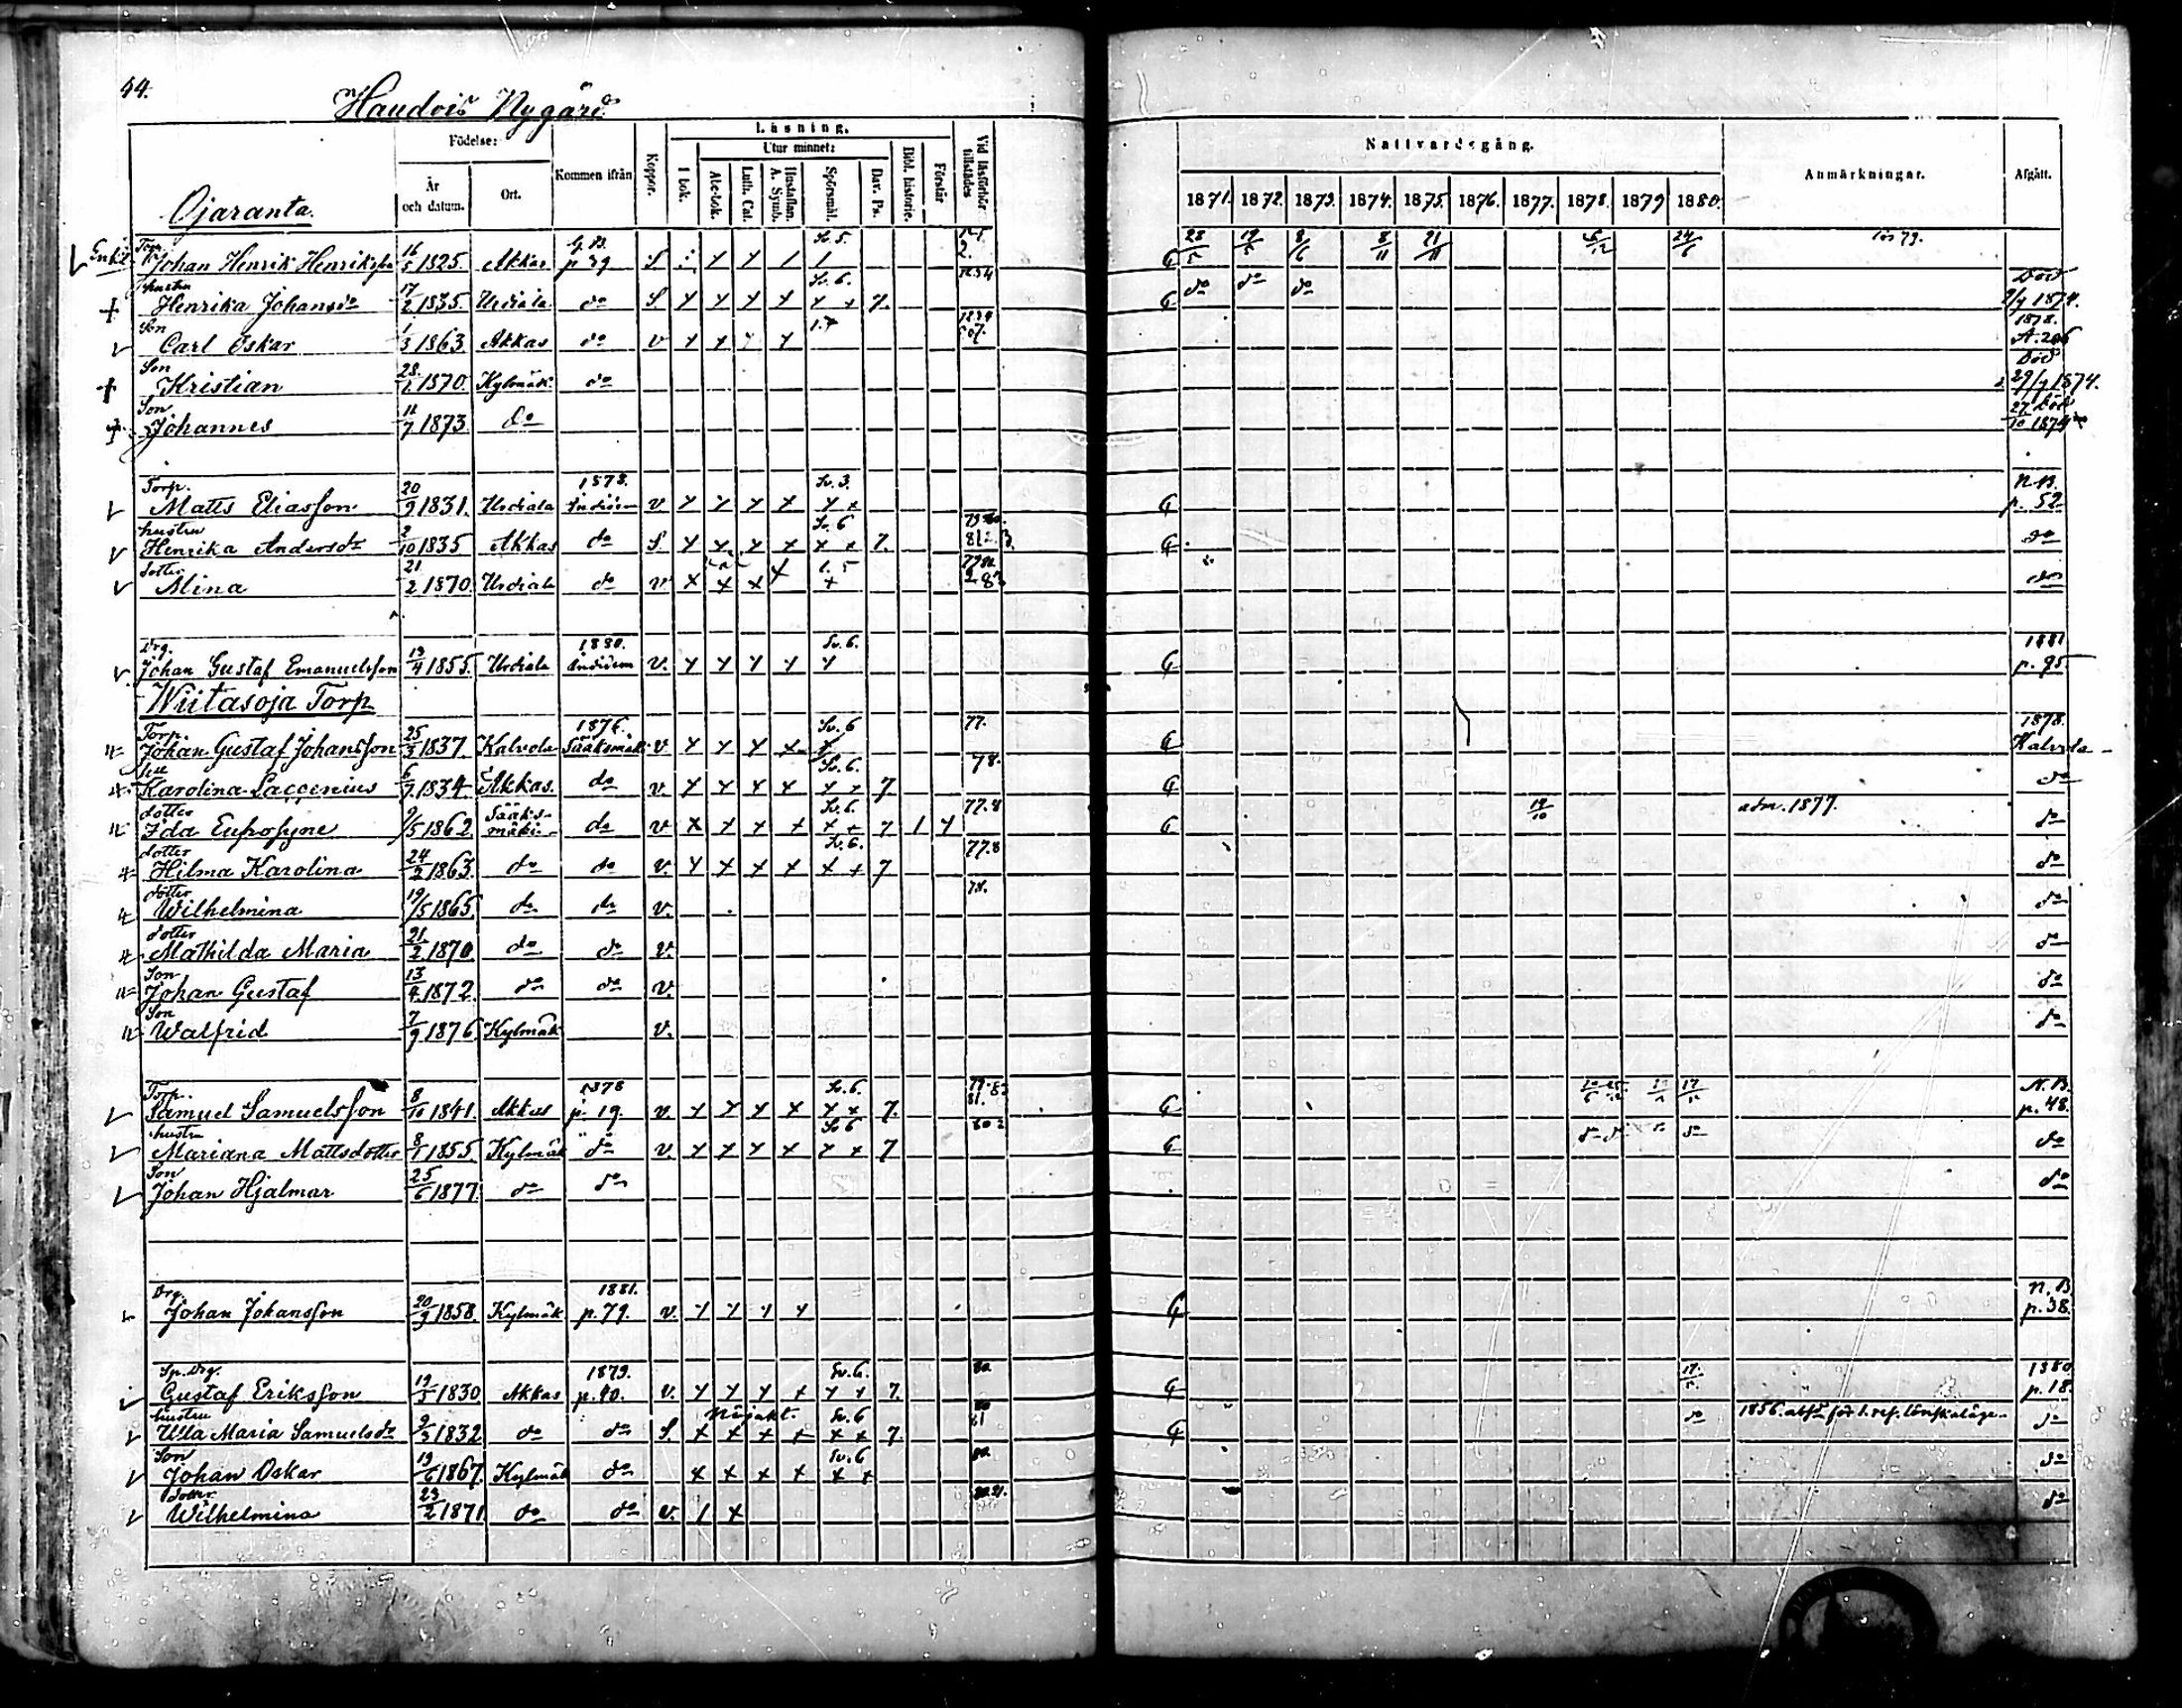 44.
Haudois Nygård
Födelse: Kommen ifrån Koppor. Läsning. Vid läsförhör tillstädes Nattvardsgång. Anmärkningar. Afgått.
År och datum. Ort. I bok. Utur minnet: Bibl. historie. Förstår
Abc-bok. Luth. Cat. Hustaflan. A. Symb. Spörsmål. Dav. Ps.
1871. 1872. 1873. 1874. 1875. 1876. 1877. 1878. 1879 1880.
Ojaranta.
Enkl. Torp. Johan Henrik Henriksson 16/5 1825. Akkas G.B. p 39 S Sv. 5. 28/5 19/5 8/6 8/11 21/11 24/6
hustru Henrika Johansdr 17/2 1835. Urdiala do S Sv. 6. 7. do do do Död 2/4 1874.
Son Carl Oskar 1/3 1863 Akkas do v 1878. A. 206
Son Kristian 28/1 1870. Kylmäk. do Död 29/7 1874.
Son Johannes 11/7 1873 do 27/10 Död 1874
Torp. Matts Eliasson 20/9 1831. Urdiala 1878. v Sv. 3. N.B. p. 52
hustru Henrika Andersdr 2/10 1835 Akkas do S. Sv. 6 7. do
dotter Mina 21/2 1870. Urdiala do v. do
Drg. Johan Gustaf Emanuelsson 13/4 1855. Urdiala 1880. v. Sv. 6. 1881 p. 95
Wiitasoja Torp.
Torp. Johan Gustaf Johansson 25/3 1837. Kalvola 1876. Sääksmäki v Sv. 6 77. 1878. Kalvola
hu Karolina Laccenius 6/7 1834. Akkas. do v. Sv. 6. 7 78. do
dotter Ida Eufrosyne 9/5 1862. Sääksmäki do v Sv. 6. 7 77.8 19/10 adm. 1877. do
dotter Hilma Karolina 24/2 1863. do do v. Sv. 6. 7 77.8 do
dotter Wilhelmina 19/5 1865. do do v. 78. do
dotter Mathilda Maria 21/2 1870. do do v. do
Son Johan Gustaf 13/4 1872. do do v. do
Son Walfrid 7/9 1876. Kylmäk v. do
Torp. Samuel Samuelsson 8/10 1841. Akkas 1878 p. 19. v. Sv. 6. 7. N.B. p. 48.
hustru Mariana Mattsdotter 8/1 1855. Kylmäk do v. Sv 6 7 do
Son Johan Hjalmar 25/6 1877. do do do
Drg. Johan Johansson 20/9 1858. Kylmäk 1881. p. 79. v. N.B. p. 38.
Sp. Drg. Gustaf Eriksson 19/3 1830 Akkas 1879. p. 40. v. Sv. 6. 7. 80. 1880 p. 18.
hustru Ulla Maria Samuelsdr 2/3 1832 do do S. Sv. 6 7. do do
Son Johan Oskar 19/6 1867. Kylmäk do Sv. 6 80. do
dotter Wilhelmina 23/2 1871 do do v. do